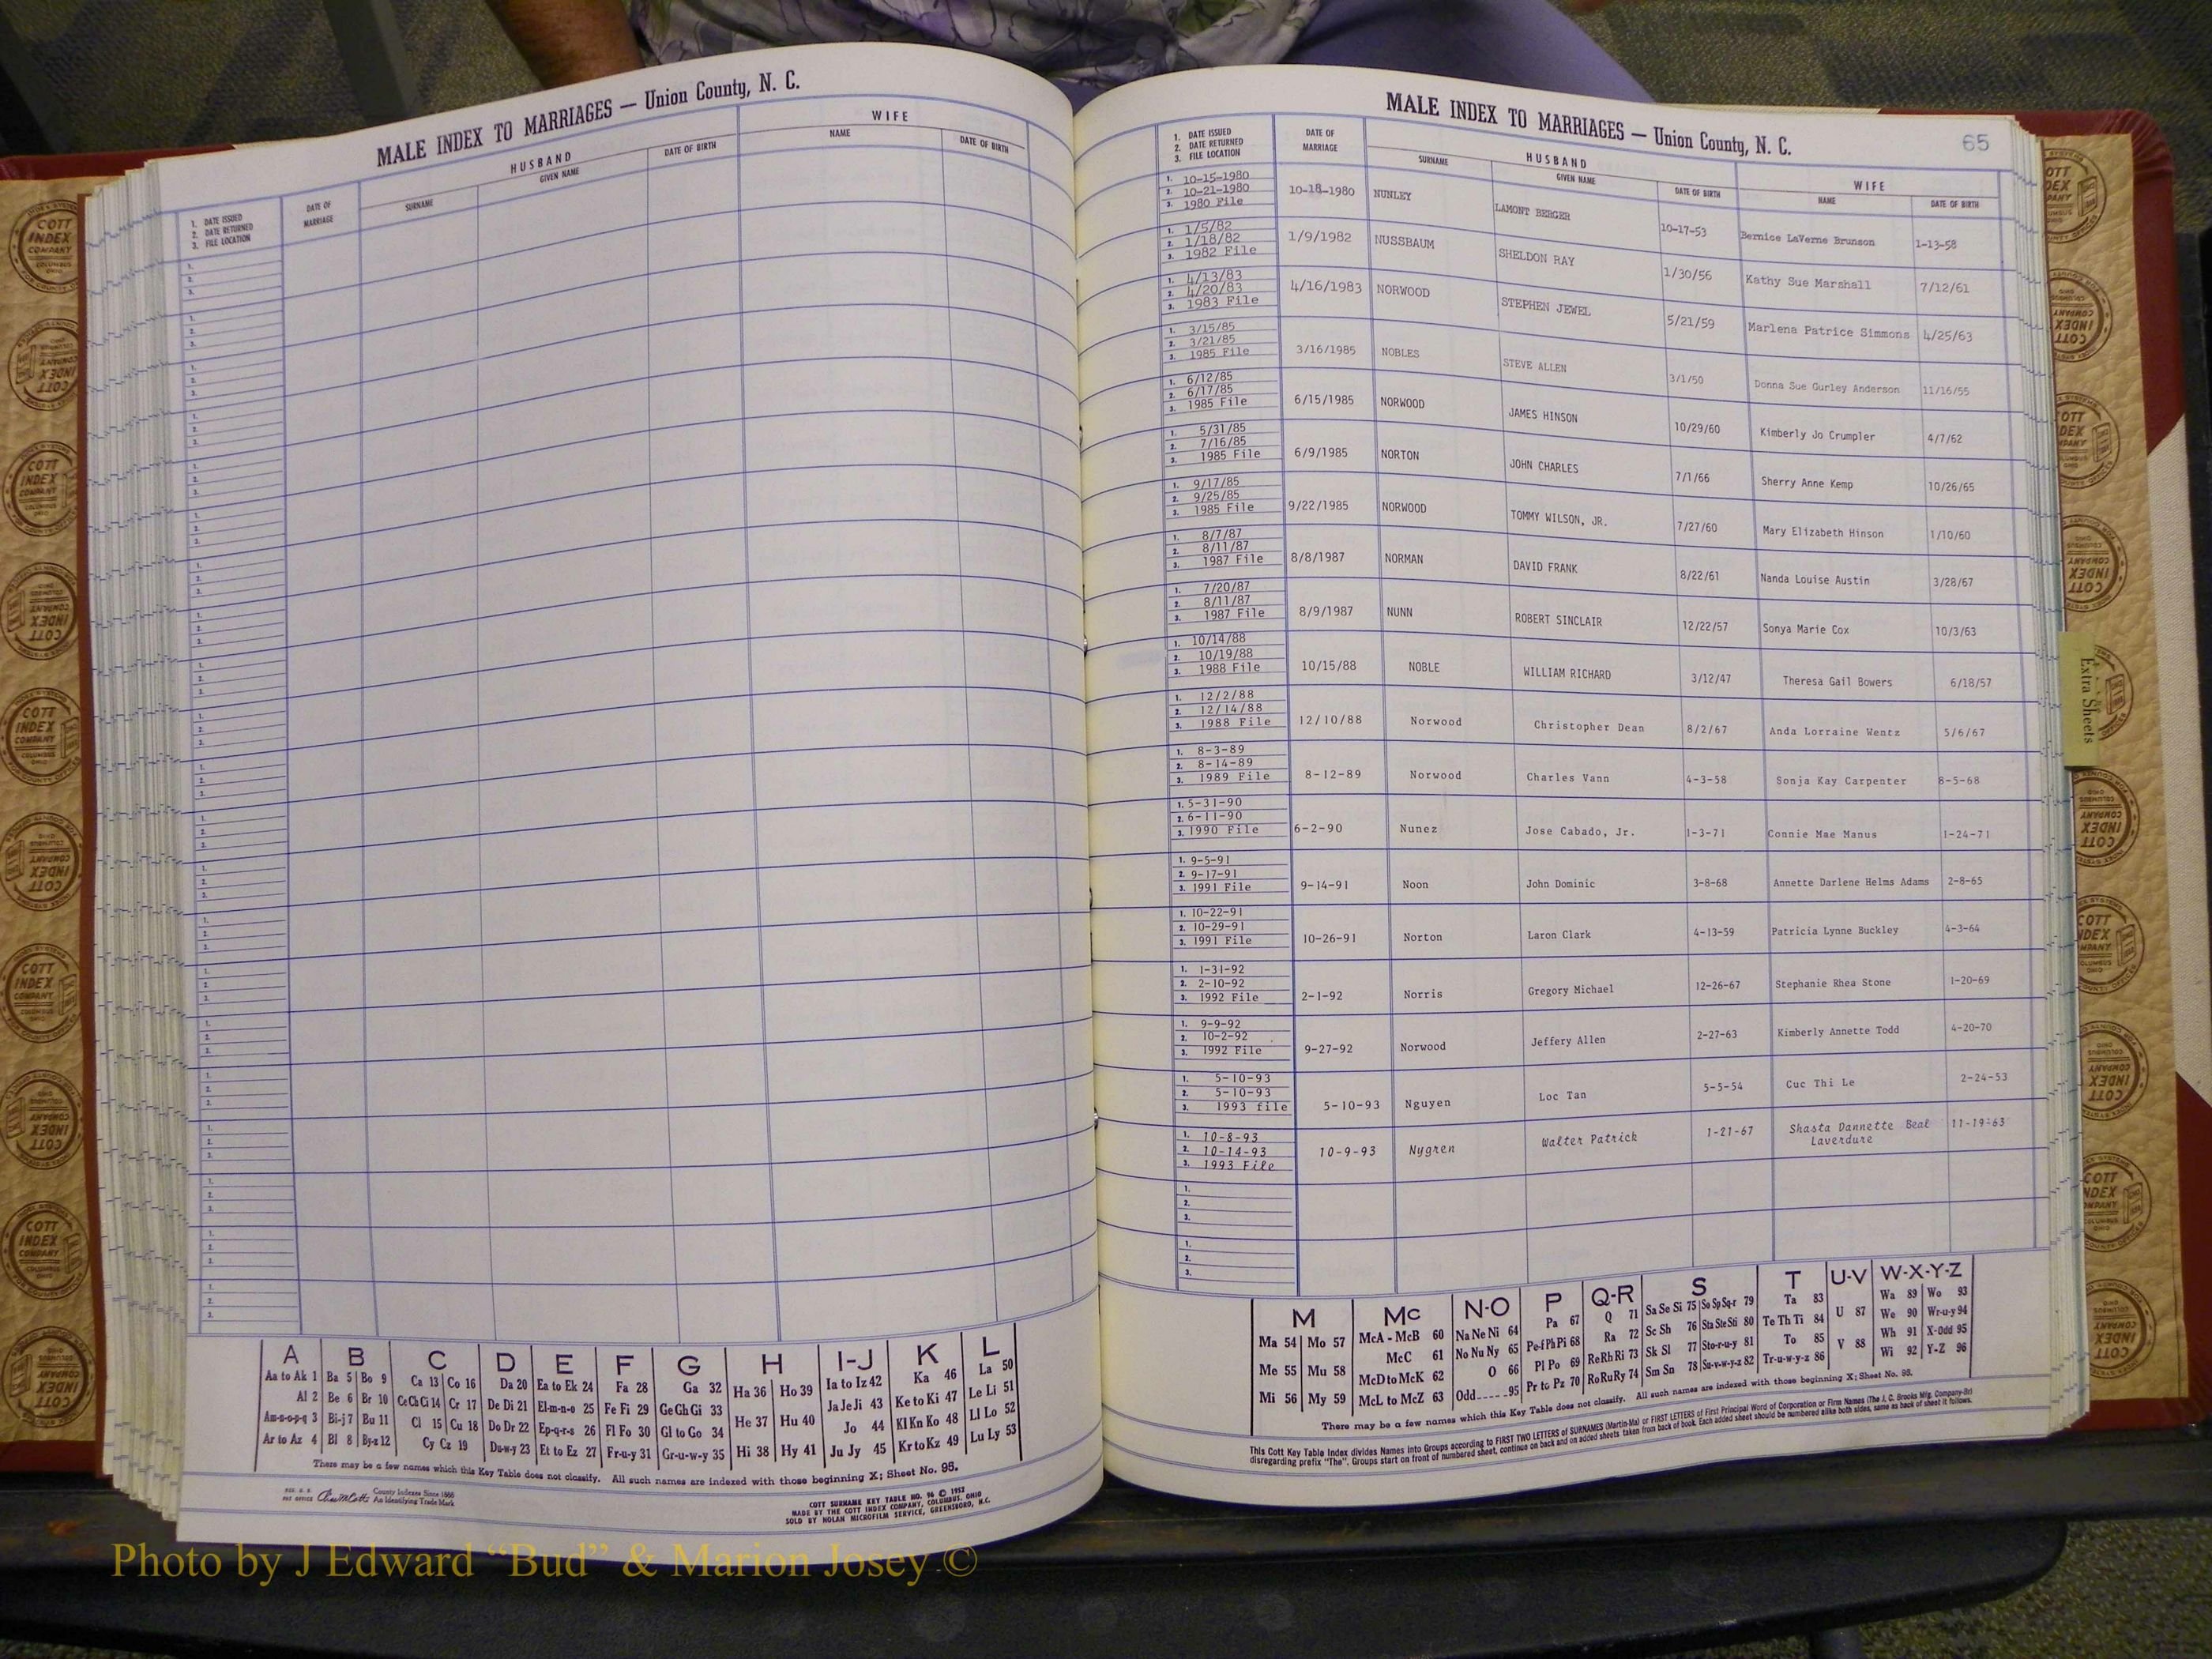 MALE INDEX TO MARRIAGES — Union County, N. C.
HUSBAND WIFE
1. DATE ISSUED 2. DATE RETURNED 3. FILE LOCATION DATE OF MARRIAGE SURNAME GIVEN NAME DATE OF BIRTH NAME DATE OF BIRTH
A B C D E F G H I-J K L
Aa to Ak 1 Ba 5 Bo 9 Ca 13 Co 16 Da 20 Ea to Ek 24 Fa 28 Ga 32 Ha 36 Ho 39 Ia to Iz 42 Ka 46 La 50
Al 2 Be 6 Br 10 Ce Ch Ci 14 Cr 17 De Di 21 El-m-n-o 25 Fe Fi 29 Ge Gh Gi 33 He 37 Hu 40 Ja Je Ji 43 Ke to Ki 47 Le Li 51
Am-n-o-p-q 3 Bi-j 7 Bu 11 Cl 15 Cu 18 Do Dr 22 Ep-q-r-s 26 Fl Fo 30 Gl to Go 34 Hi 38 Hy 41 Jo 44 Kl Kn Ko 48 Ll Lo 52
Ar to Az 4 Bl 8 By-z 12 Cy Cz 19 Du-w-y 23 Et to Ez 27 Fr-u-y 31 Gr-u-w-y 35 Ju Jy 45 Kr to Kz 49 Lu Ly 53
There may be a few names which this Key Table does not classify. All such names are indexed with those beginning X; Sheet No. 95.
County Indexes Since 1888
An Identifying Trade Mark
COTT SURNAME KEY TABLE NO. 96 © 1952
MADE BY THE COTT INDEX COMPANY, COLUMBUS, OHIO
SOLD BY NOLAN MICROFILM SERVICE, GREENSBORO, N.C.
MALE INDEX TO MARRIAGES — Union County, N. C.
65
HUSBAND WIFE
1. DATE ISSUED 2. DATE RETURNED 3. FILE LOCATION DATE OF MARRIAGE SURNAME GIVEN NAME DATE OF BIRTH NAME DATE OF BIRTH
1. 10-15-1980
2. 10-21-1980
3. 1980 File 10-18-1980 NUNLEY LAMONT BERGER 10-17-53 Bernice LaVerne Brunson 1-13-58
1. 1/5/82
2. 1/18/82
3. 1982 File 1/9/1982 NUSSBAUM SHELDON RAY 1/30/56 Kathy Sue Marshall 7/12/61
1. 4/13/83
2. 4/20/83
3. 1983 File 4/16/1983 NORWOOD STEPHEN JEWEL 5/21/59 Marlena Patrice Simmons 4/25/63
1. 3/15/85
2. 3/21/85
3. 1985 File 3/16/1985 NOBLES STEVE ALLEN 3/1/50 Donna Sue Gurley Anderson 11/16/55
1. 6/12/85
2. 6/17/85
3. 1985 File 6/15/1985 NORWOOD JAMES HINSON 10/29/60 Kimberly Jo Crumpler 4/7/62
1. 5/31/85
2. 7/16/85
3. 1985 File 6/9/1985 NORTON JOHN CHARLES 7/1/66 Sherry Anne Kemp 10/26/65
1. 9/17/85
2. 9/25/85
3. 1985 File 9/22/1985 NORWOOD TOMMY WILSON, JR. 7/27/60 Mary Elizabeth Hinson 1/10/60
1. 8/7/87
2. 8/11/87
3. 1987 File 8/8/1987 NORMAN DAVID FRANK 8/22/61 Nanda Louise Austin 3/28/67
1. 7/20/87
2. 8/11/87
3. 1987 File 8/9/1987 NUNN ROBERT SINCLAIR 12/22/57 Sonya Marie Cox 10/3/63
1. 10/14/88
2. 10/19/88
3. 1988 File 10/15/88 NOBLE WILLIAM RICHARD 3/12/47 Theresa Gail Bowers 6/18/57
1. 12/2/88
2. 12/14/88
3. 1988 File 12/10/88 Norwood Christopher Dean 8/2/67 Anda Lorraine Wentz 5/6/67
1. 8-3-89
2. 8-14-89
3. 1989 File 8-12-89 Norwood Charles Vann 4-3-58 Sonja Kay Carpenter 8-5-68
1. 5-31-90
2. 6-11-90
3. 1990 File 6-2-90 Nunez Jose Cabado, Jr. 1-3-71 Connie Mae Manus 1-24-71
1. 9-5-91
2. 9-17-91
3. 1991 File 9-14-91 Noon John Dominic 3-8-68 Annette Darlene Helms Adams 2-8-65
1. 10-22-91
2. 10-29-91
3. 1991 File 10-26-91 Norton Laron Clark 4-13-59 Patricia Lynne Buckley 4-3-64
1. 1-31-92
2. 2-10-92
3. 1992 File 2-1-92 Norris Gregory Michael 12-26-67 Stephanie Rhea Stone 1-20-69
1. 9-9-92
2. 10-2-92
3. 1992 File 9-27-92 Norwood Jeffery Allen 2-27-63 Kimberly Annette Todd 4-20-70
1. 5-10-93
2. 5-10-93
3. 1993 file 5-10-93 Nguyen Loc Tan 5-5-54 Cuc Thi Le 2-24-53
1. 10-8-93
2. 10-14-93
3. 1993 File 10-9-93 Nygren Walter Patrick 1-21-67 Shasta Dannette Beal Laverdure 11-19-63
1.
2.
3.
1.
2.
3.
M Mc N-O P Q-R S T U-V W-X-Y-Z
Ma 54 Mo 57 McA - McB 60 Na Ne Ni 64 Pa 67 Q 71 Sa Se Si 75 So Sp Sq-r 79 Ta 83 U 87 Wa 89 Wo 93
Me 55 Mu 58 McC 61 No Nu Ny 65 Pe-f Ph Pi 68 Ra 72 Sc Sh 76 Sta Ste Sti 80 Te Th Ti 84 V 88 We 90 Wr-u-y 94
Mi 56 My 59 McD to McK 62 O 66 Pl Po 69 Re Rh Ri 73 Sk Sl 77 Sto-r-u-y 81 To 85 Wh 91 X-Odd 95
McL to McZ 63 Odd 95 Pr to Pz 70 Ro Ru Ry 74 Sm Sn 78 Su-v-w-y-z 82 Tr-u-w-y-z 86 Wi 92 Y-Z 96
There may be a few names which this Key Table does not classify. All such names are indexed with those beginning X; Sheet No. 95.
This Cott Key Table Index divides Names into Groups according to FIRST TWO LETTERS of SURNAMES (Martin-Ma) or FIRST LETTERS of First Principal Word of Corporation or Firm Names (The J. C. Brooks Mfg. Company-Br)
disregarding prefix "The". Groups start on front of numbered sheet, continue on back and on added sheets taken from back of book. Each added sheet should be numbered alike both sides, same as back of sheet it follows.
Extra Sheets
COTT INDEX COMPANY COLUMBUS OHIO
Photo by J Edward "Bud" & Marion Josey ©